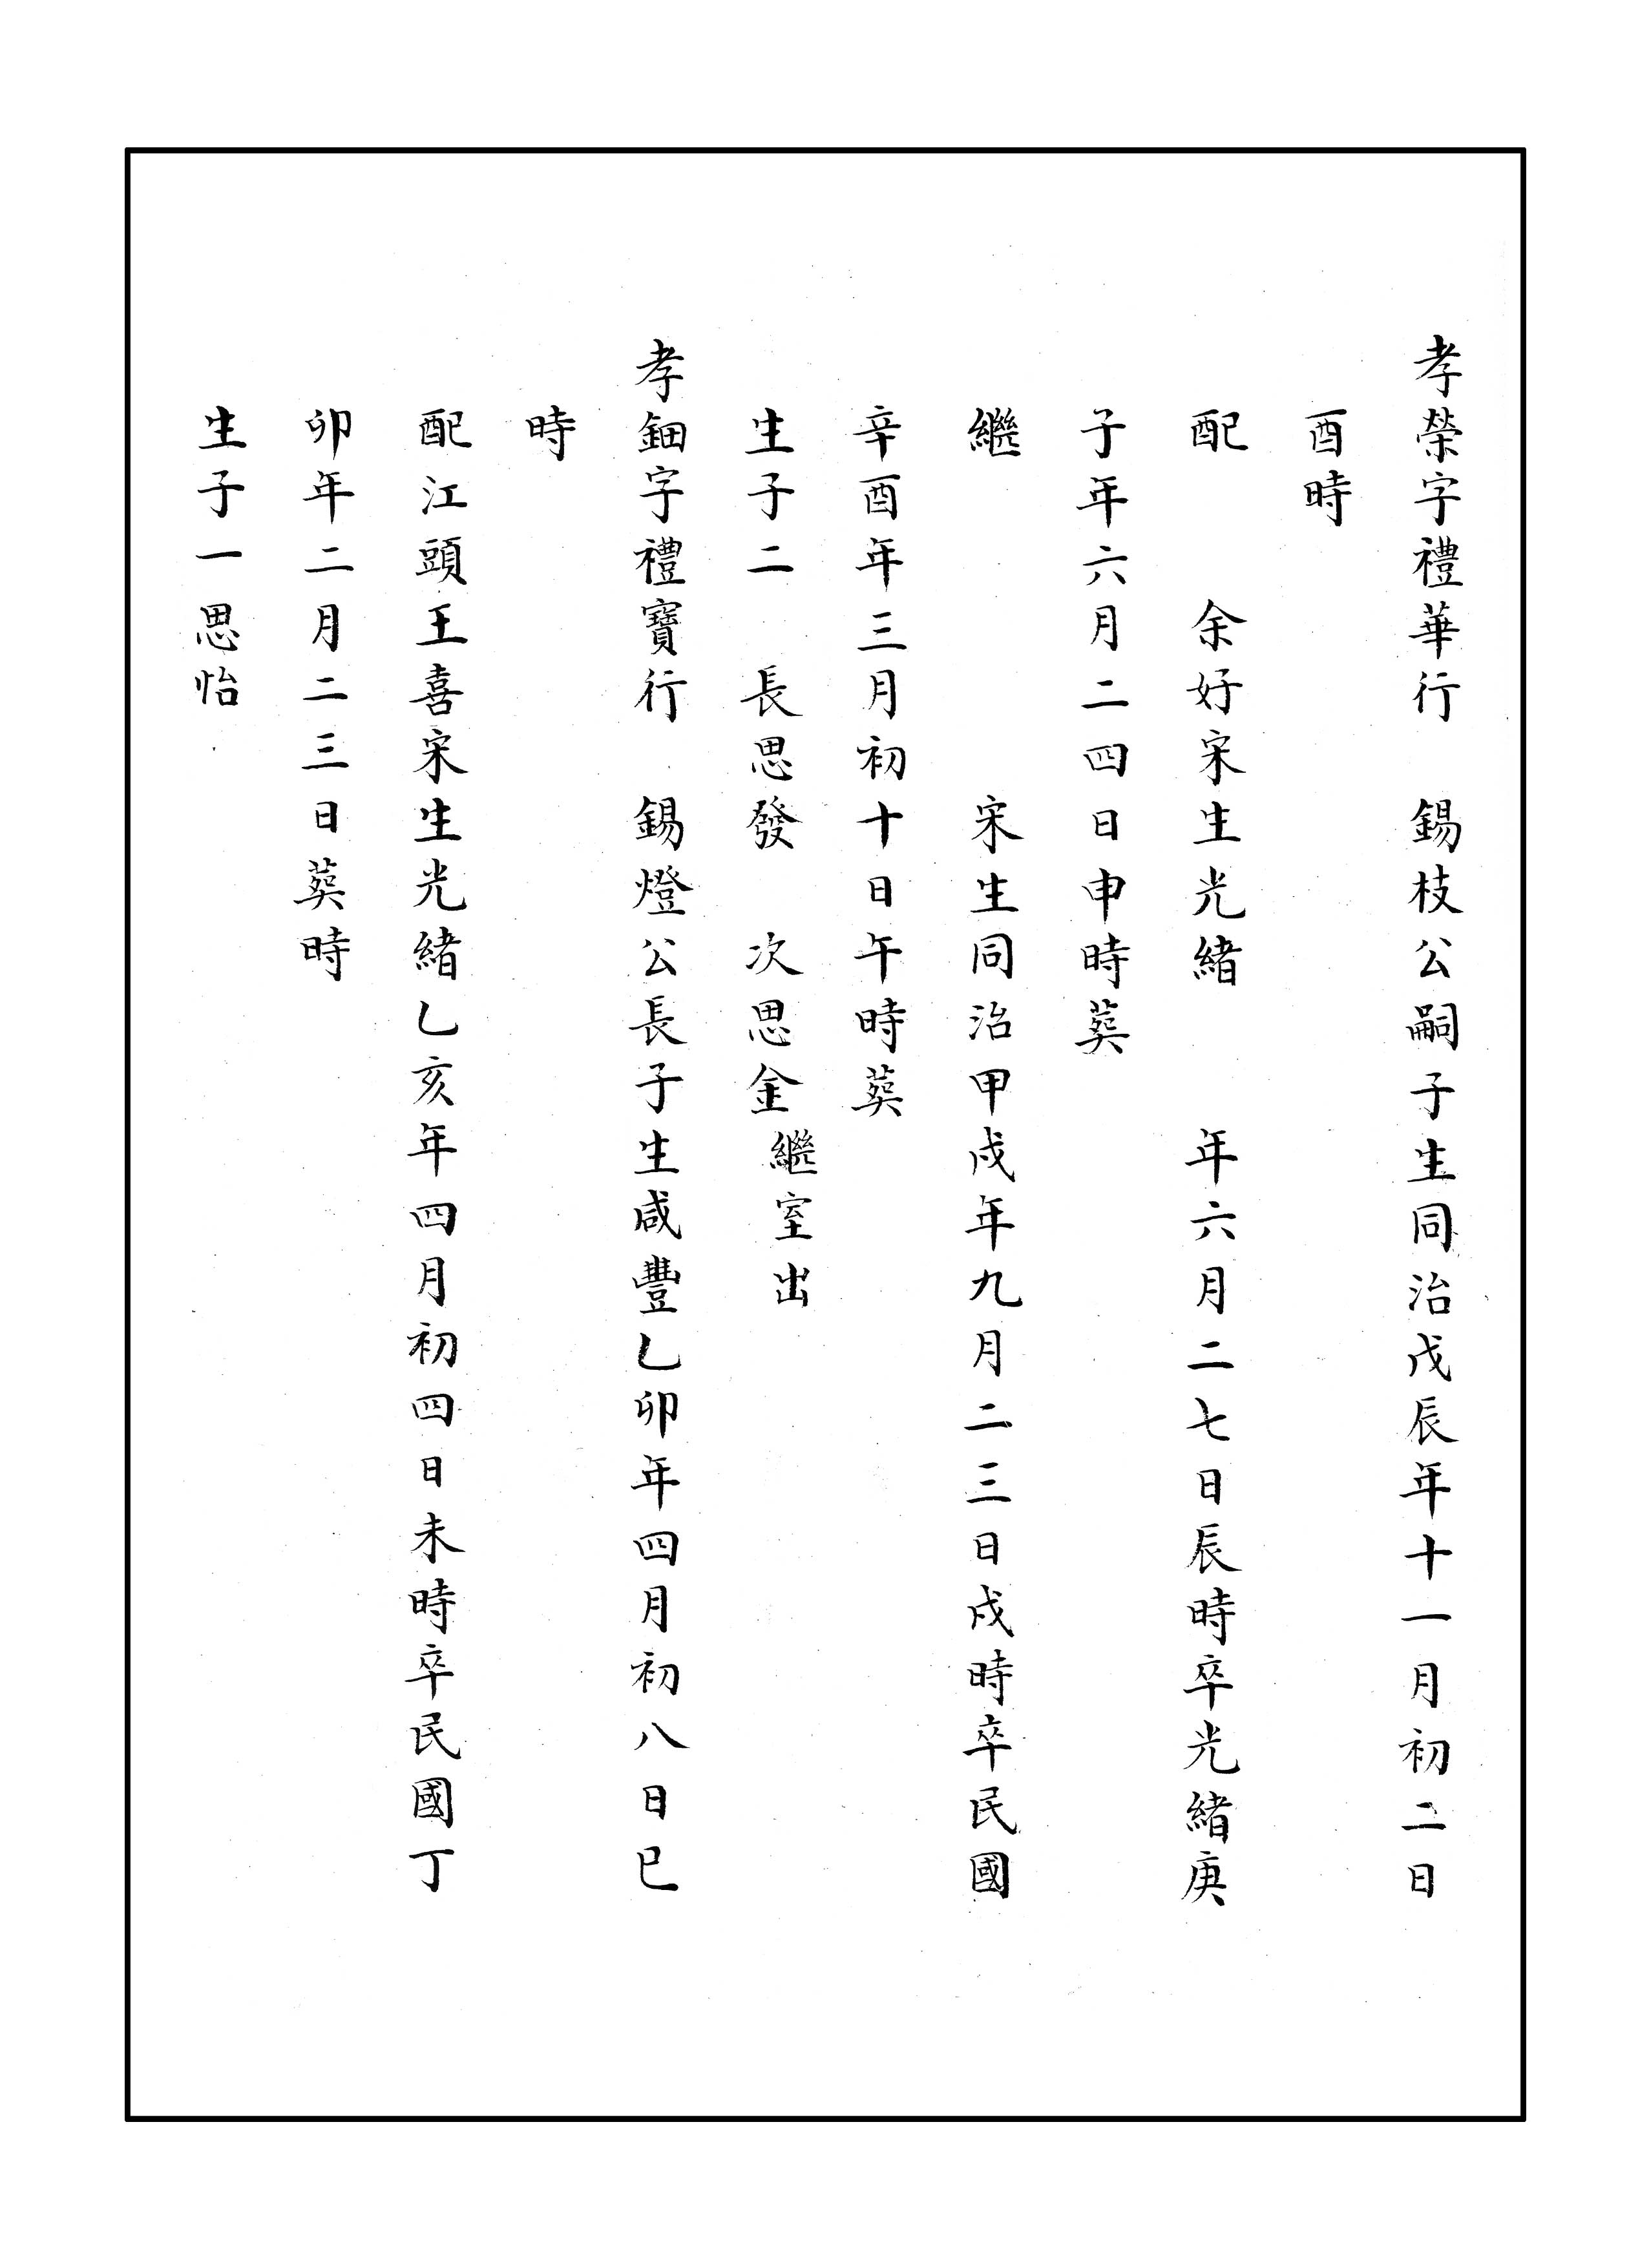 孝榮字禮華行　錫枝公嗣子生同治戊辰年十一月初二日
酉時
配　　余好宋生光緒　　年六月二七日辰時卒光緒庚
子年六月二四日申時葬
繼　　　　　宋生同治甲戌年九月二三日戌時卒民國
辛酉年三月初十日午時葬
生子二　長思發　次思金繼室出
孝鈿字禮寶行　錫燈公長子生咸豐乙卯年四月初八日巳
時
配江頭王喜宋生光緒乙亥年四月初四日未時卒民國丁
卯年二月二三日葬時
生子一思怡